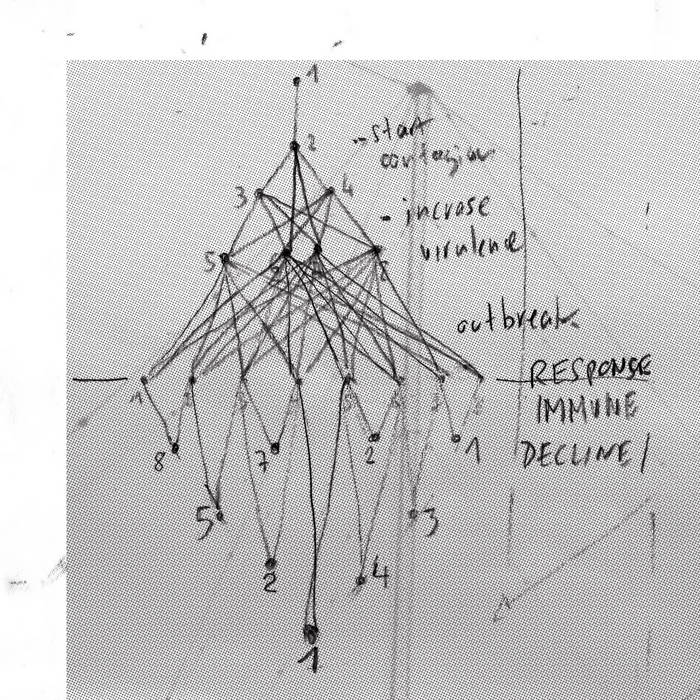 1
2
- start
contagion
3 4
- increse
virulence
5
outbreak
RESPONSE
IMMUNE
DECLINE/
8 7 2 1
5 3
2 4
1